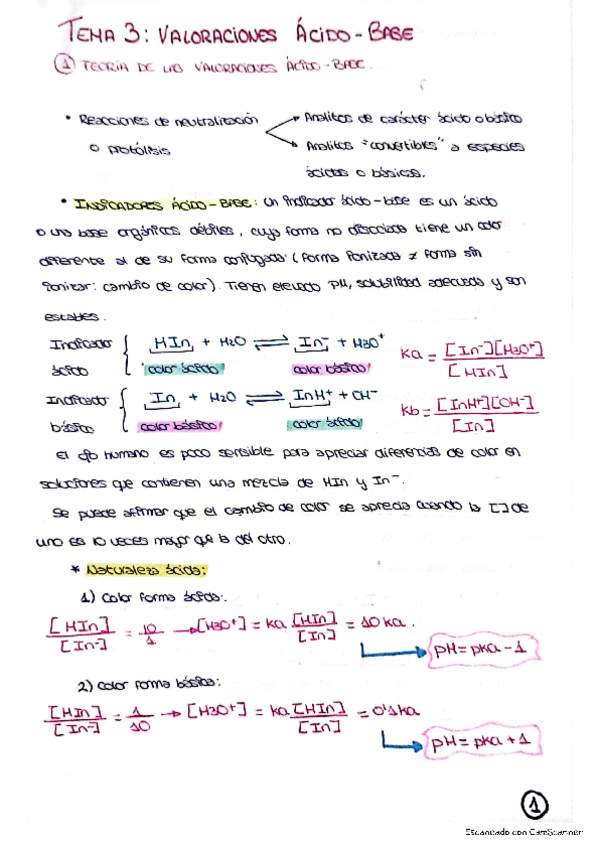 TEMA 3: VALORACIONES ÁCIDO-BASE
① TEORÍA DE LAS VALORACIONES ÁCIDO-BASE.
• Reacciones de neutralización → Analitos de carácter ácido o básico
o protólisis → Analitos "convertibles" a especies
ácidas o básicas.
• INDICADORES ÁCIDO-BASE: Un indicador ácido-base es un ácido
o una base orgánicos débiles, cuya forma no disociada tiene un color
diferente al de su forma conjugada (forma ionizada ≠ forma sin
ionizar: cambio de color). Tienen elevado PM, solubilidad adecuada y son
estables.
Indicador ácido { HIn + H2O ⇌ In⁻ + H3O⁺ Ka = [In⁻][H3O⁺] / [HIn]
color ácido color básico
Indicador básico { In + H2O ⇌ InH⁺ + OH⁻ Kb = [InH⁺][OH⁻] / [In]
color básico color ácido
El ojo humano es poco sensible para apreciar diferencias de color en
soluciones que contienen una mezcla de HIn y In⁻.
Se puede afirmar que el cambio de color se aprecia cuando la [] de
uno es 10 veces mayor que la del otro.
* Naturaleza ácida:
1) Color forma ácida:
[HIn] / [In⁻] = 10/1 → [H3O⁺] = Ka [HIn] / [In] = 10 Ka.
pH = pKa - 1
2) Color forma básica:
[HIn] / [In⁻] = 1/10 → [H3O⁺] = Ka [HIn] / [In] = 0'1 Ka
pH = pKa + 1
1
Escaneado con CamScanner